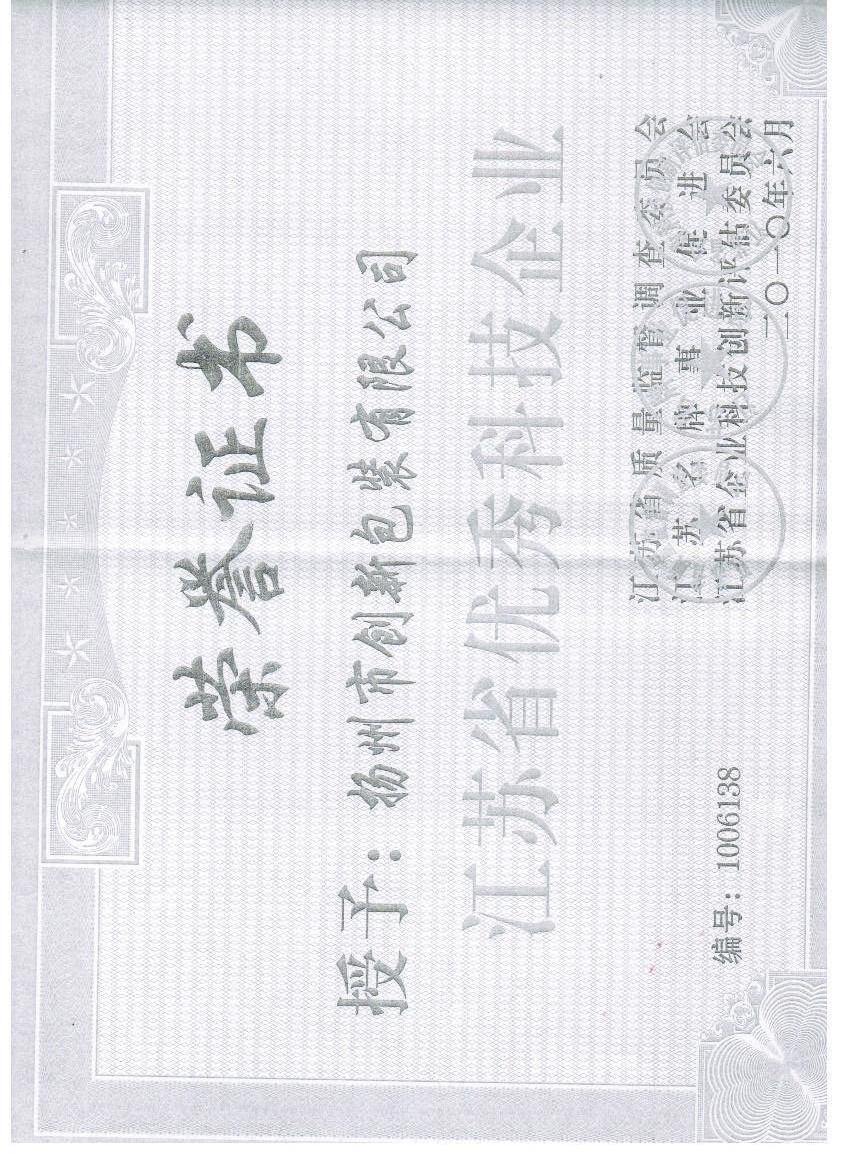 荣誉证书
授予：扬州市创新包装有限公司
江苏省优秀科技企业
编号：1006138
江苏省质量监督调查委员会
江苏名牌事业促进会
江苏省企业科技创新评估委员会
二〇一〇年六月